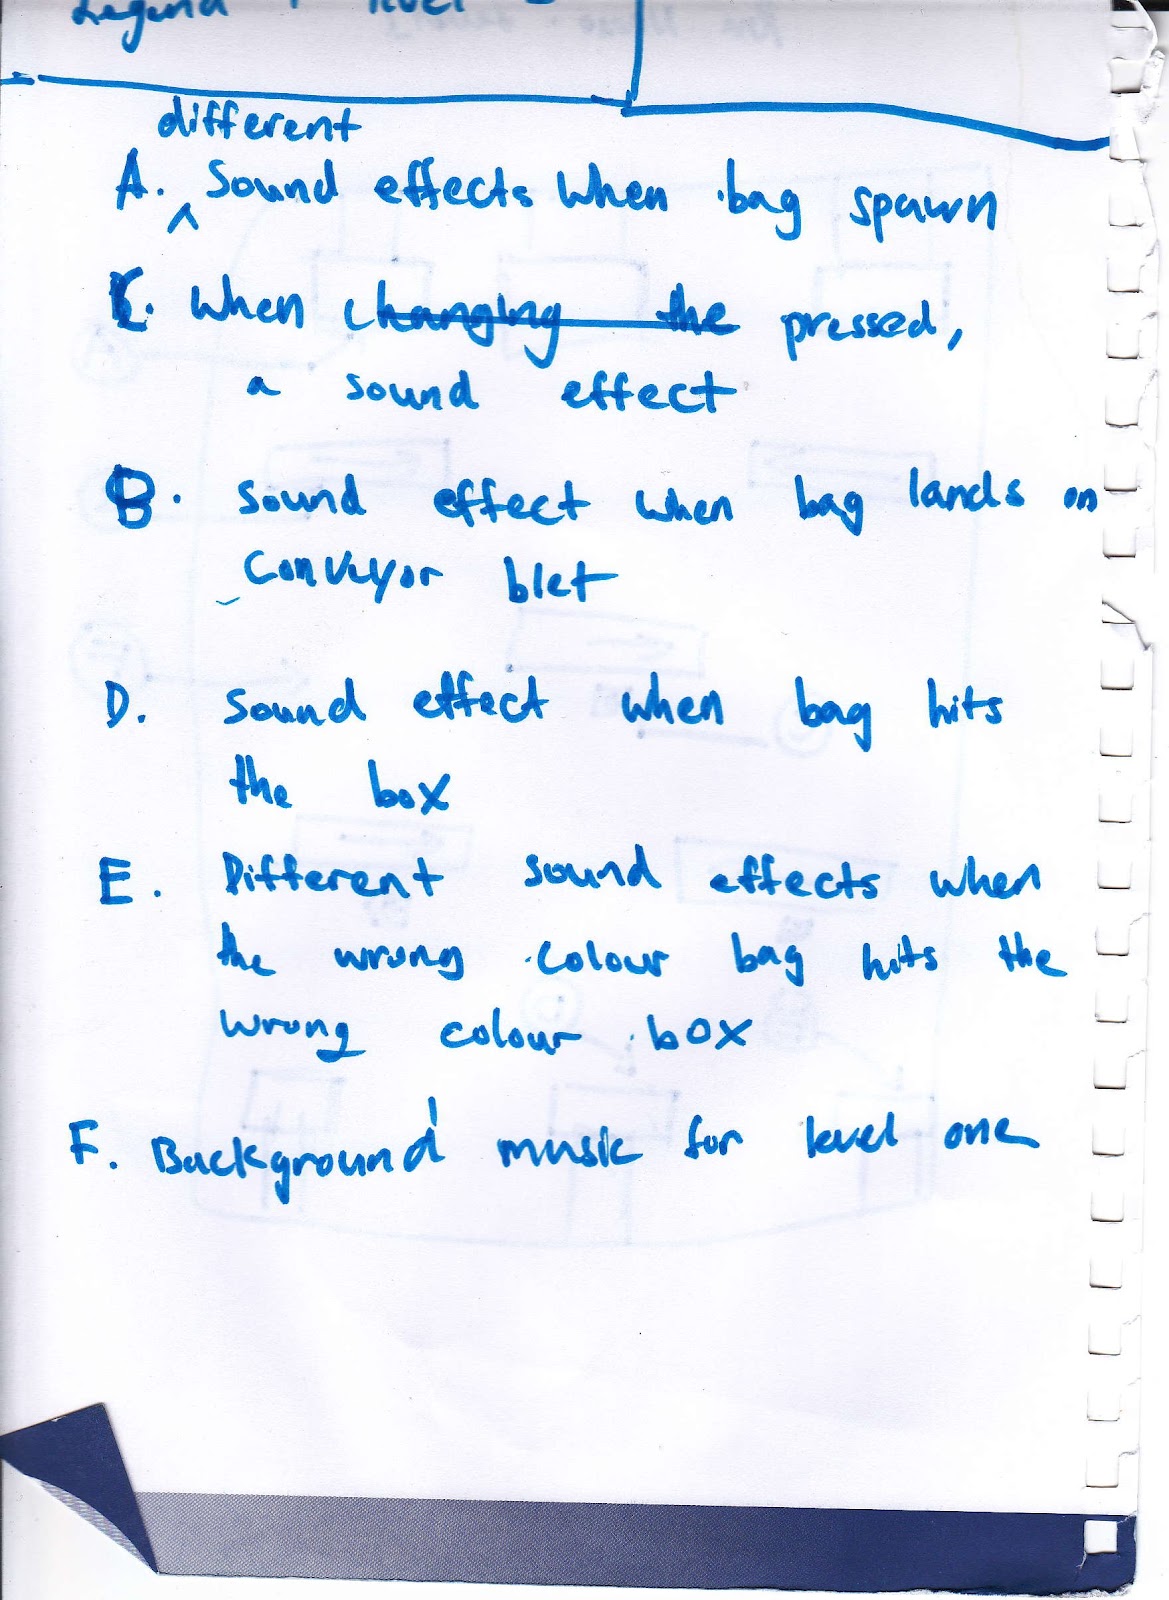 Legend level
different
A. ^ Sound effects when bag spawn
C. When changing the pressed,
a sound effect
B. Sound effect when bag lands on
Conveyor blet
D. Sound effect when bag hits
the box
E. Different sound effects when
the wrong colour bag hits the
wrong colour box
F. Background music for level one